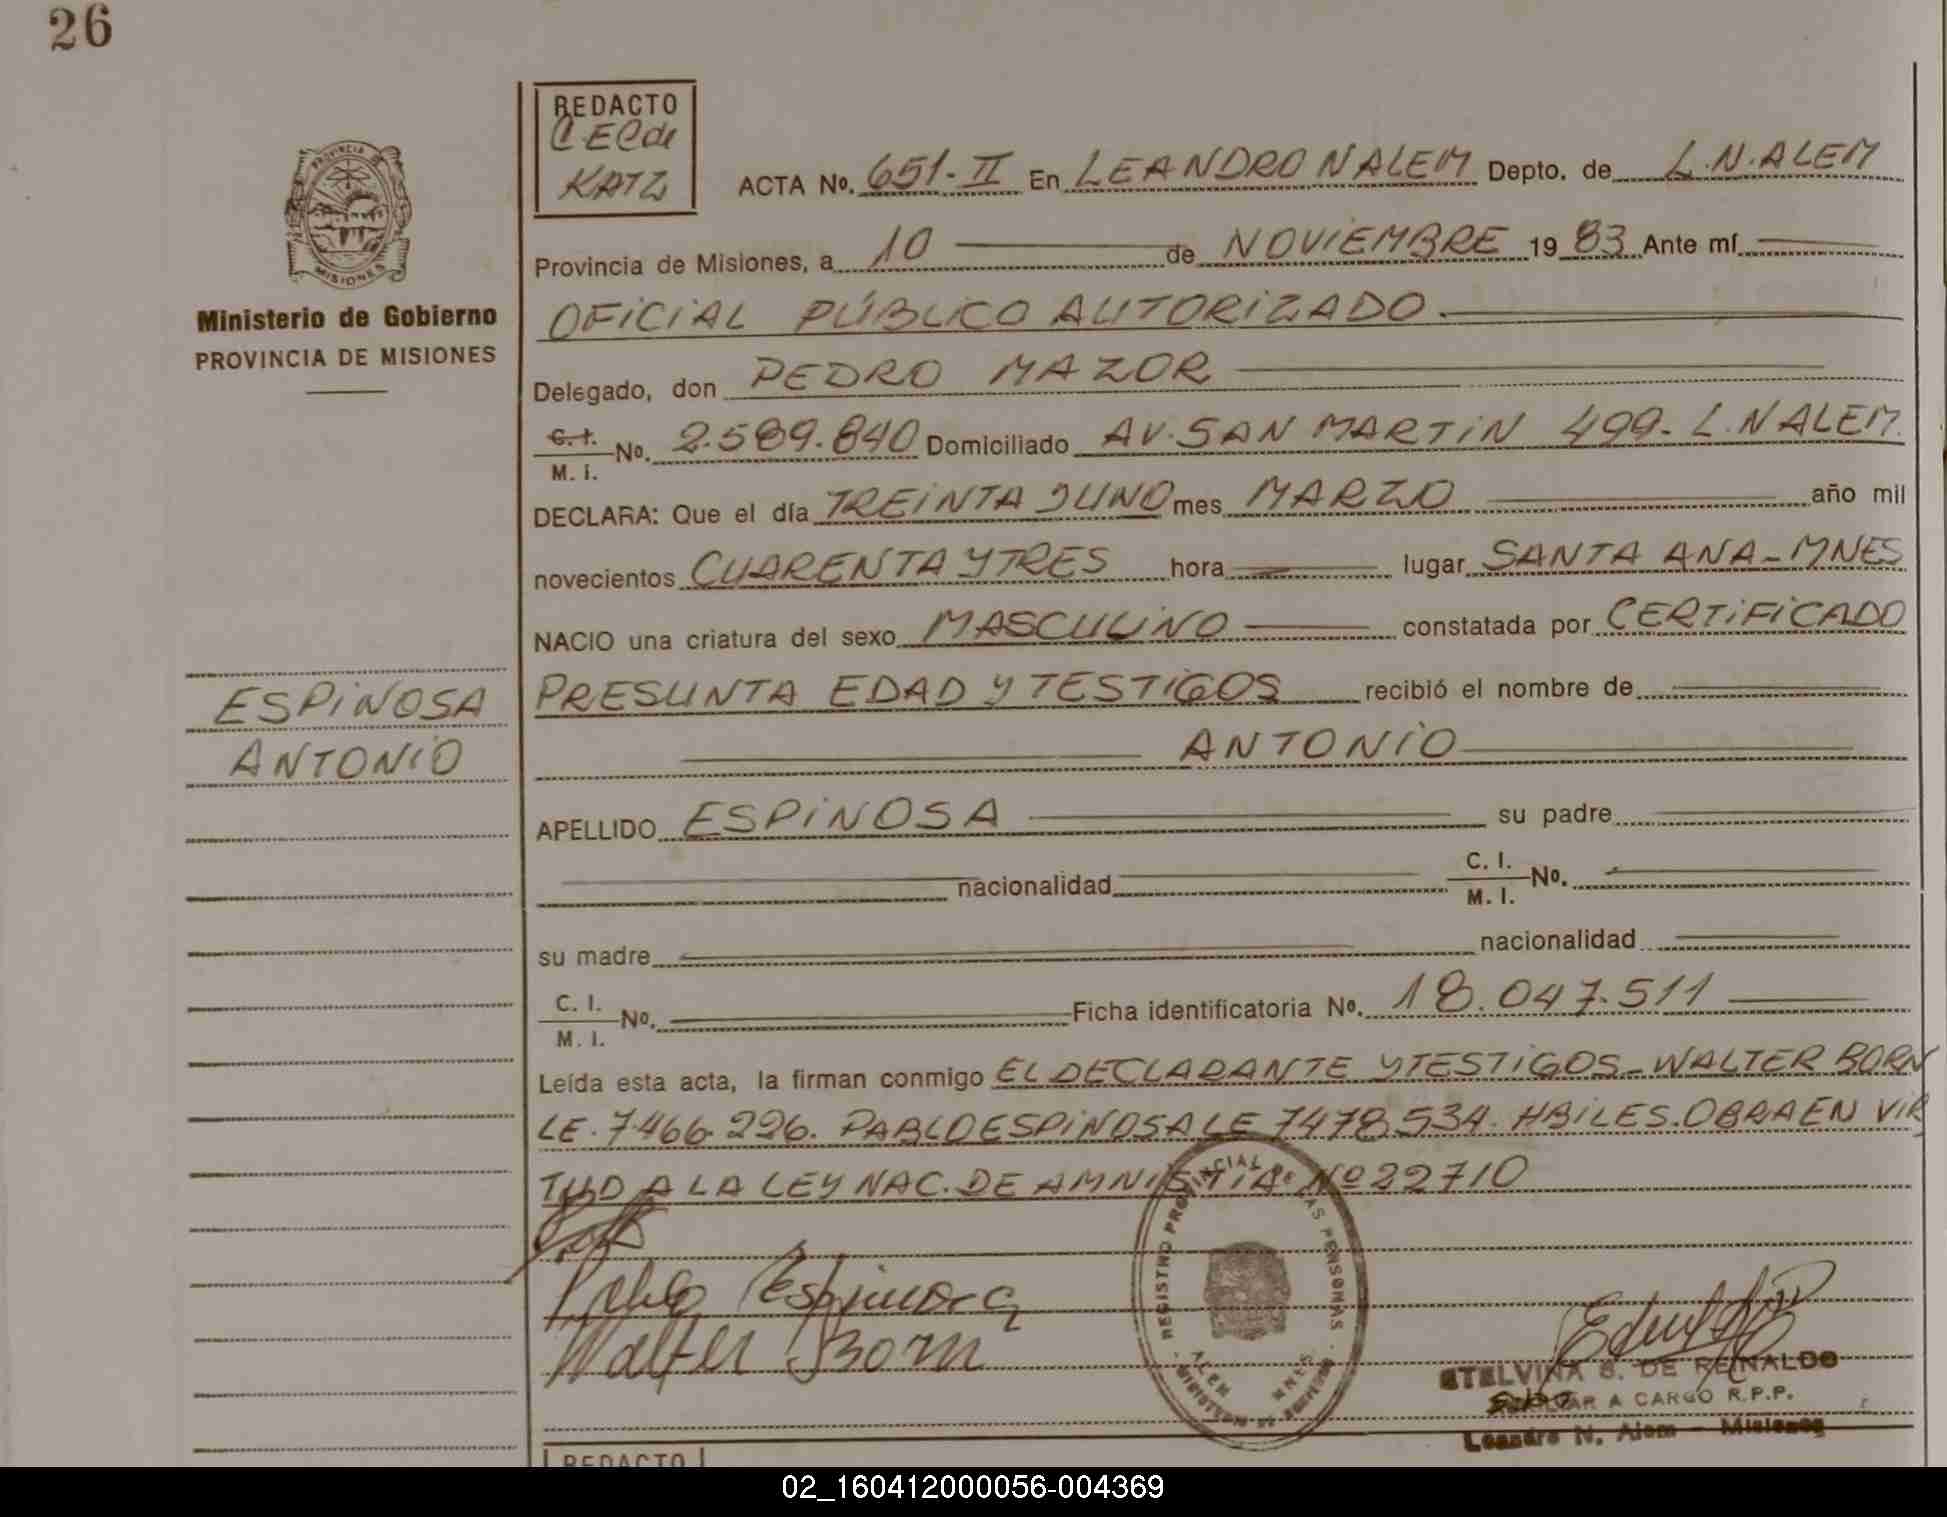 26
REDACTO
C E C de
KATZ
ACTA No. 651-II En LEANDRO N ALEM Depto. de L.N.ALEM
PROVINCIA DE
MISIONES
Provincia de Misiones, a 10 de NOVIEMBRE 19 83 Ante mí
Ministerio de Gobierno
OFICIAL PÚBLICO AUTORIZADO.
PROVINCIA DE MISIONES
Delegado, don PEDRO MAZOR
C. I.
M. I. No. 2.589.840 Domiciliado AV. SAN MARTIN 499- L.N ALEM.
DECLARA: Que el día TREINTA Y UNO mes MARZO año mil
novecientos CUARENTA Y TRES hora lugar SANTA ANA-MNES
NACIO una criatura del sexo MASCULINO constatada por CERTIFICADO
ESPINOSA
PRESUNTA EDAD Y TESTIGOS recibió el nombre de
ANTONIO
ANTONIO
APELLIDO ESPINOSA su padre
nacionalidad C. I.
M. I. No.
su madre nacionalidad
C. I.
M. I. No. Ficha identificatoria No. 18.047.511
Leída esta acta, la firman conmigo EL DECLARANTE Y TESTIGOS-WALTER BORN
LE. 7.466.226. PABLO ESPINOSA LE 7478534. HBILES. OBRA EN VIR
TUD A LA LEY NAC. DE AMNISTIA Nº 22710
Pablo Espinosa
Walter Born
REGISTRO PROVINCIAL DE LAS PERSONAS
ALEM MNES
MINISTERIO DE GOBIERNO
ETELVINA S. DE REINALDO
AUXILIAR A CARGO R.P.P.
Leandro N. Alem - Misiones
REDACTO
02_160412000056-004369